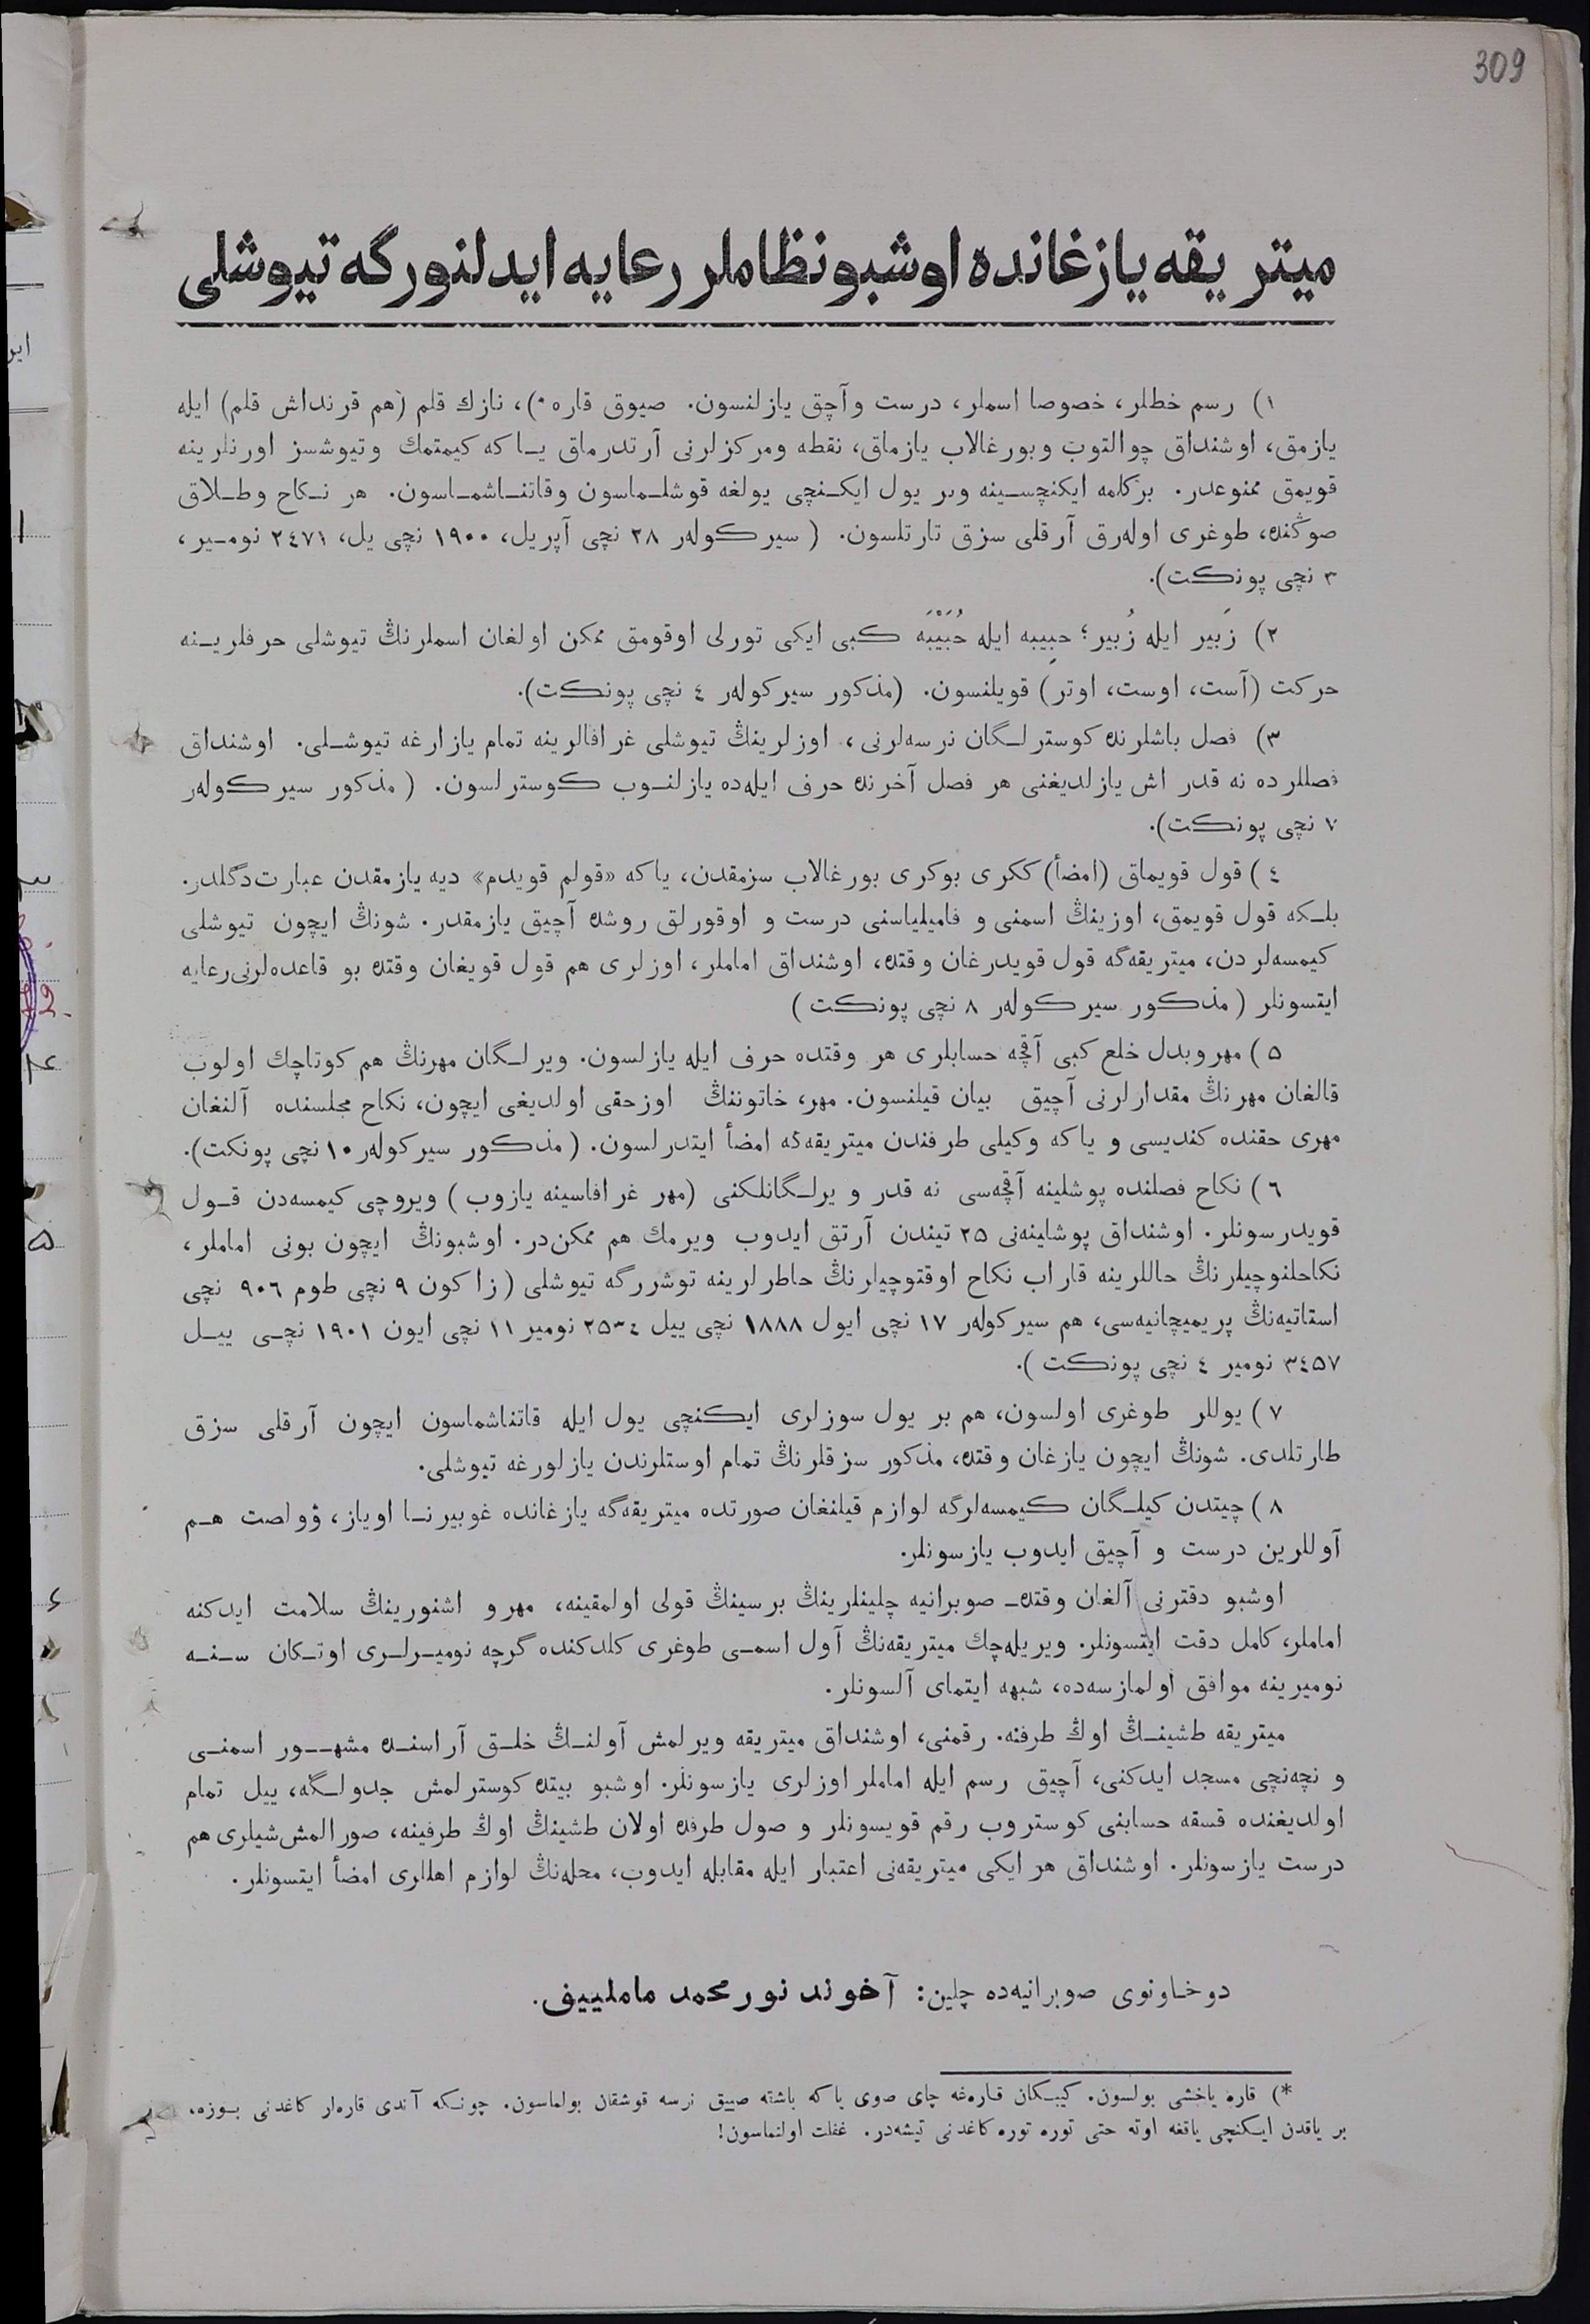 309
ميتريقه يازغانده اوشبو نظاملر رعايه ايدلنورگه تيوشلى
١) رسم خطلر، خصوصا اسملر، درست وآچق يازلنسون. صيوق قاره*)، نازك قلم (هم قرنداش قلم) ايله
يازمق، اوشنداق چوالتوب وبورغالاب يازماق، نقطه ومركزلرنى آرتدرماق يــاكه كيمتمك وتيوشسز اورنلرينه
قويمق ممنوعدر. بركلمه ايكنچســينه وبر يول ايكــنچى يولغه قوشلــماسون وقاتنــاشمــاسون. هر نــكاح وطــلاق
صوڭنده، طوغرى اولەرق آرقلى سزق تارتلسون. (سيركولەر ٢٨ نچى آپريل، ١٩٠٠ نچى يل، ٢٤٧١ نوميــر،
٣ نچى پونكت).
٢) زَبير ايله زُبير؛ حبِيبه ايله حُبَيْبَه كبى ايكى تورلى اوقومق ممكن اولغان اسملرنڭ تيوشلى حرفلريــنه
حركت (آست، اوست، اوتر) قويلنسون. (مذكور سيركولەر ٤ نچى پونكت).
٣) فصل باشلرنده كوسترلــگان نرسەلرنى، اوزلرينڭ تيوشلى غرافالرينه تمام يازارغه تيوشــلى. اوشنداق
فصللرده نه قدر اش يازلديغنى هر فصل آخرنده حرف ايلەده يازلنــوب كوسترلسون. (مذكور سيركولەر
٧ نچى پونكت).
٤) قول قويماق (امضأ) ككرى بوكرى بورغالاب سزمقدن، ياكه «قولم قويدم» ديه يازمقدن عبارت دگلدر.
بلــكه قول قويمق، اوزينڭ اسمنى و فاميلياسنى درست و اوقورلق روشده آچيق يازمقدر. شونڭ ايچون تيوشلى
كيمسەلردن، ميتريقەگه قول قويدرغان وقتده، اوشنداق اماملر، اوزلرى هم قول قويغان وقتده بو قاعدەلرنى رعايه
ايتسونلر (مذكور سيركولەر ٨ نچى پونكت)
٥) مهر وبدل خلع كبى آقچه حسابلرى هر وقتده حرف ايله يازلسون. ويرلــگان مهرنڭ هم كوتاچك اولوب
قالغان مهرنڭ مقدارلرنى آچيق بيان قيلنسون. مهر، خاتوننڭ اوزحقى اولديغى ايچون، نكاح مجلسنده آلنغان
مهرى حقنده كنديسى و ياكه وكيلى طرفندن ميتريقەگه امضأ ايتدرلسون. (مذكور سيركولەر ١٠ نچى پونكت).
٦) نكاح فصلنده پوشلينه آقچەسى نه قدر ويرلــگانلكنى (مهر غرافاسينه يازوب) ويروچى كيمسەدن قــول
قويدرسونلر. اوشنداق پوشلينەنى ٢٥ تيندن آرتق ايدوب ويرمك هم ممكن در. اوشبونڭ ايچون بونى اماملر،
نكاحلنوچيلرنڭ حاللرينه قاراب نكاح اوقتوچيلرنڭ خاطرلرينه توشررگه تيوشلى (زاكون ٩ نچى طوم ٩٠٦ نچى
استاتيەنڭ پريميچانيەسى، هم سيركولەر ١٧ نچى ايول ١٨٨٨ نچى ييل ٢٥٣٤ نومير ١١ نچى ايون ١٩٠١ نچــى ييــل
٣٤٥٧ نومير ٤ نچى پونكت).
٧) يوللر طوغرى اولسون، هم بر يول سوزلرى ايكنچى يول ايله قاتناشماسون ايچون آرقلى سزق
طارتلدى. شونڭ ايچون يازغان وقتده، مذكور سزقلرنڭ تمام اوستلرندن يازلورغه تيوشلى.
٨) چيتدن كيلــگان كيمسەلرگه لوازم قيلنغان صورتده ميتريقەگه يازغانده غوبيرنــا اوياز، وولصت هــم
آوللرين درست و آچيق ايدوب يازسونلر.
اوشبو دفترنى آلغان وقتده ــ صوبرانيه چلينلرينڭ برسينڭ قولى اولمقينه، مهر و اشنورينڭ سلامت ايدكنه
اماملر، كامل دقت ايتسونلر. ويريلەچك ميتريقەنڭ آول اسمــى طوغرى كلدكنده گرچه نوميــرلــرى اوتــكان ســنــه
نوميرينه موافق اولمازسەده، شبهه ايتماى آلسونلر.
ميتريقه طشينــڭ اوڭ طرفنه. رقمنى، اوشنداق ميتريقه ويرلمش آولنــڭ خلــق آراسنــده مشهــور اسمنــى
و نچەنچى مسجد ايدكنى، آچيق رسم ايله اماملر اوزلرى يازسونلر. اوشبو بيتده كوسترلمش جدولــگه، ييل تمام
اولديغنده قسقه حسابنى كوستروب رقم قويسونلر و صول طرفده اولان طشينڭ اوڭ طرفينه، صورالمش شيلرى هم
درست يازسونلر. اوشنداق هر ايكى ميتريقەنى اعتبار ايله مقابله ايدوب، محلەنڭ لوازم اهللرى امضأ ايتسونلر.
دوخاونوى صوبرانيەده چلين: آخوند نورمحمد ماملييف.
*) قاره ياخشى بولسون. كيبــكان قارەغه چاى صوى ياكه باشقه صييق نرسه قوشقان بولماسون. چونــكه آندى قارەلر كاغدنى بــوزه،
بر ياقدن ايــكنچى ياقغه اوته حتى توره توره كاغدنى تيشەدر. غفلت اولنماسون!